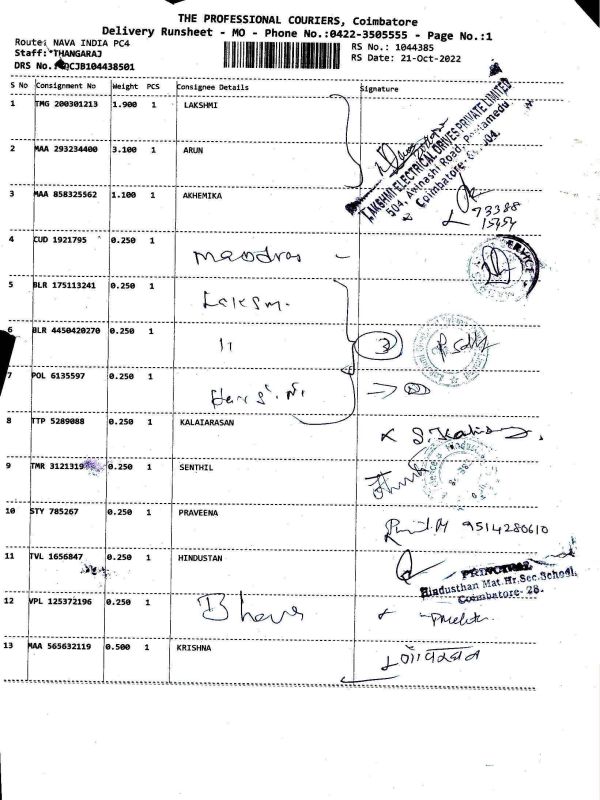 THE PROFESSIONAL COURIERS, Coimbatore
Delivery Runsheet - MO - Phone No.:0422-3505555 - Page No.:1
Route: NAVA INDIA PC4 RS No.: 1044385
Staff:*THANGARAJ RS Date: 21-Oct-2022
DRS No. CJB104438501
S No Consignment No Weight PCS Consignee Details Signature
1 TMG 200301213 1.900 1 LAKSHMI
LAKSHMI ELECTRICAL DRIVES PRIVATE LIMITED
504, Avinashi Road, Peelamedu
Coimbatore-
2 MAA 293234400 3.100 1 ARUN
3 MAA 858325562 1.100 1 AKHEMIKA
73388
15454
4 CUD 1921795 0.250 1 Madras
SERVICE
5 BLR 175113241 0.250 1 Laksm.
6 BLR 4450420270 0.250 1 11 3
7 POL 6135597 0.250 1
8 TTP 5289088 0.250 1 KALAIARASAN
9 TMR 3121319 0.250 1 SENTHIL
10 STY 785267 0.250 1 PRAVEENA 9514280610
11 TVL 1656847 0.250 1 HINDUSTAN
PRINCIPAL
Hindusthan Mat.Hr.Sec.School,
Coimbatore- 28.
12 VPL 125372196 0.250 1
13 MAA 565632119 0.500 1 KRISHNA